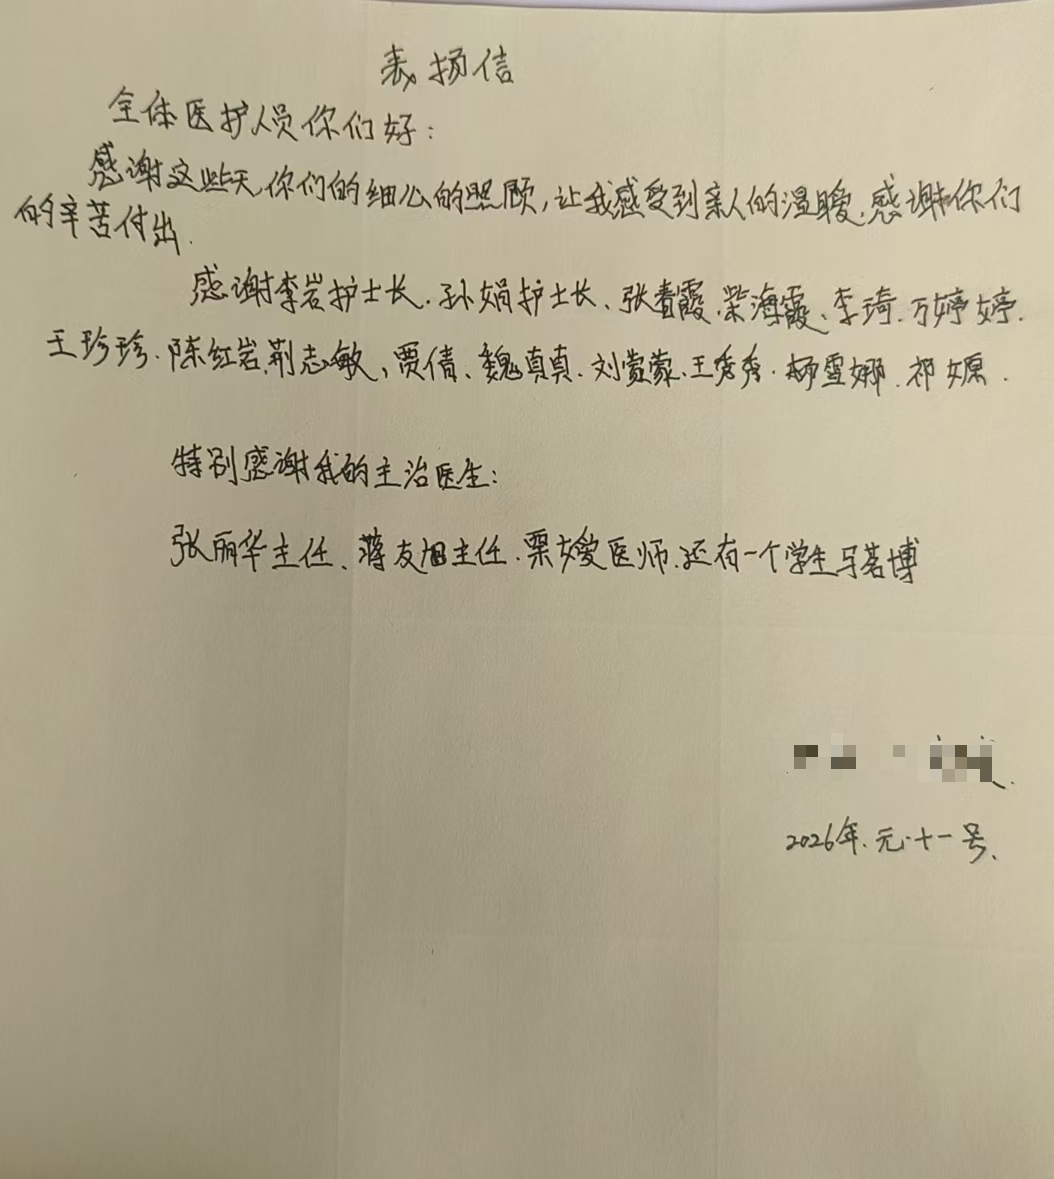 表扬信
全体医护人员你们好：
感谢这些天你们的细心的照顾，让我感受到亲人的温暖，感谢你们
的辛苦付出.
感谢李岩护士长、孙娟护士长、张春霞、柴海霞、李琦、万婷婷.
王珍珍、陈红岩、荆志敏，贾倩、魏真真、刘蒙蒙、王秀秀、杨雪娜、祁嫄.
特别感谢我的主治医生：
张丽华主任、蒋友旭主任、栗媛医师.还有一个学生马茗博
2026年.元.十一号.